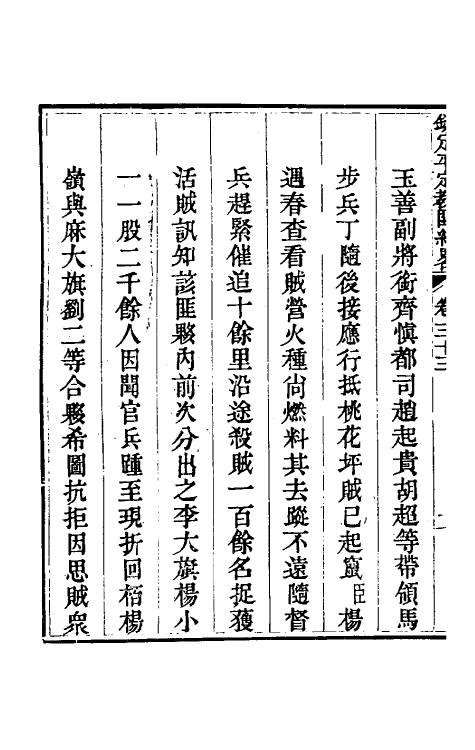 欽定平定教匪紀畧 卷三十三
玉善副將銜齊愼都司趙起貴胡超等帶領馬
步兵丁隨後接應行抵桃花坪賊已起竄臣楊
遇春查看賊營火種尙燃料其去蹤不遠隨督
兵趕緊催追十餘里沿途殺賊一百餘名捉獲
活賊訊知該匪夥內前次分出之李大旗楊小
一一股二千餘人因聞官兵踵至現折回栢楊
嶺與麻大旗劉二等合夥希圖抗拒因思賊衆